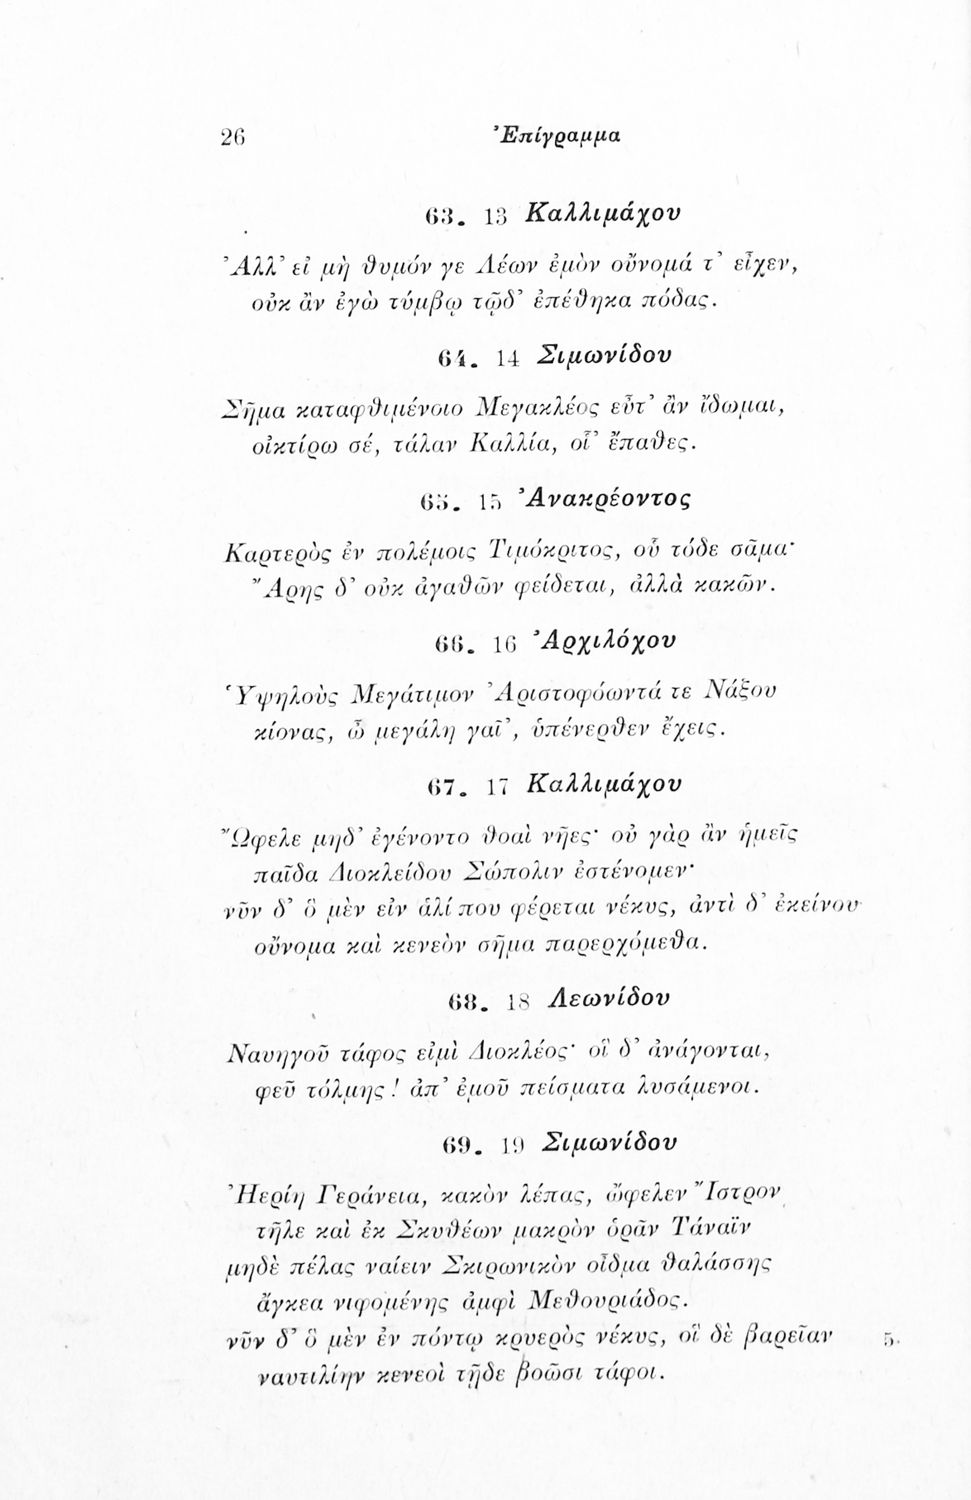 26 Ἐπίγραμμα
63. 13 Καλλιμάχου
Ἀλλ’ εἰ μὴ θυμόν γε Λέων ἐμὸν οὔνομά τ’ εἶχεν,
οὐκ ἂν ἐγὼ τύμβῳ τῷδ’ ἐπέθηκα πόδας.
64. 14 Σιμωνίδου
Σῆμα καταφθιμένοιο Μεγακλέος εὖτ’ ἂν ἴδωμαι,
οἰκτίρω σέ, τάλαν Καλλία, οἷ’ ἔπαθες.
65. 15 Ἀνακρέοντος
Καρτερὸς ἐν πολέμοις Τιμόκριτος, οὗ τόδε σᾶμα·
Ἄρης δ’ οὐκ ἀγαθῶν φείδεται, ἀλλὰ κακῶν.
66. 16 Ἀρχιλόχου
Ὑψηλοὺς Μεγάτιμον Ἀριστοφόωντά τε Νάξου
κίονας, ὦ μεγάλη γαῖ’, ὑπένερθεν ἔχεις.
67. 17 Καλλιμάχου
Ὤφελε μηδ’ ἐγένοντο θοαὶ νῆες· οὐ γὰρ ἂν ἡμεῖς
παῖδα Διοκλείδου Σώπολιν ἐστένομεν·
νῦν δ’ ὃ μὲν εἰν ἁλί που φέρεται νέκυς, ἀντὶ δ’ ἐκείνου
οὔνομα καὶ κενεὸν σῆμα παρερχόμεθα.
68. 18 Λεωνίδου
Ναυηγοῦ τάφος εἰμὶ Διοκλέος· οἳ δ’ ἀνάγονται,
φεῦ τόλμης! ἀπ’ ἐμοῦ πείσματα λυσάμενοι.
69. 19 Σιμωνίδου
Ἠερίη Γεράνεια, κακὸν λέπας, ὤφελεν Ἴστρον
τῆλε καὶ ἐκ Σκυθέων μακρὸν ὁρᾶν Τάναϊν
μηδὲ πέλας ναίειν Σκιρωνικὸν οἶδμα θαλάσσης
ἄγκεα νιφομένης ἀμφὶ Μεθουριάδος.
νῦν δ’ ὃ μὲν ἐν πόντῳ κρυερὸς νέκυς, οἳ δὲ βαρεῖαν 5.
ναυτιλίην κενεοὶ τῇδε βοῶσι τάφοι.